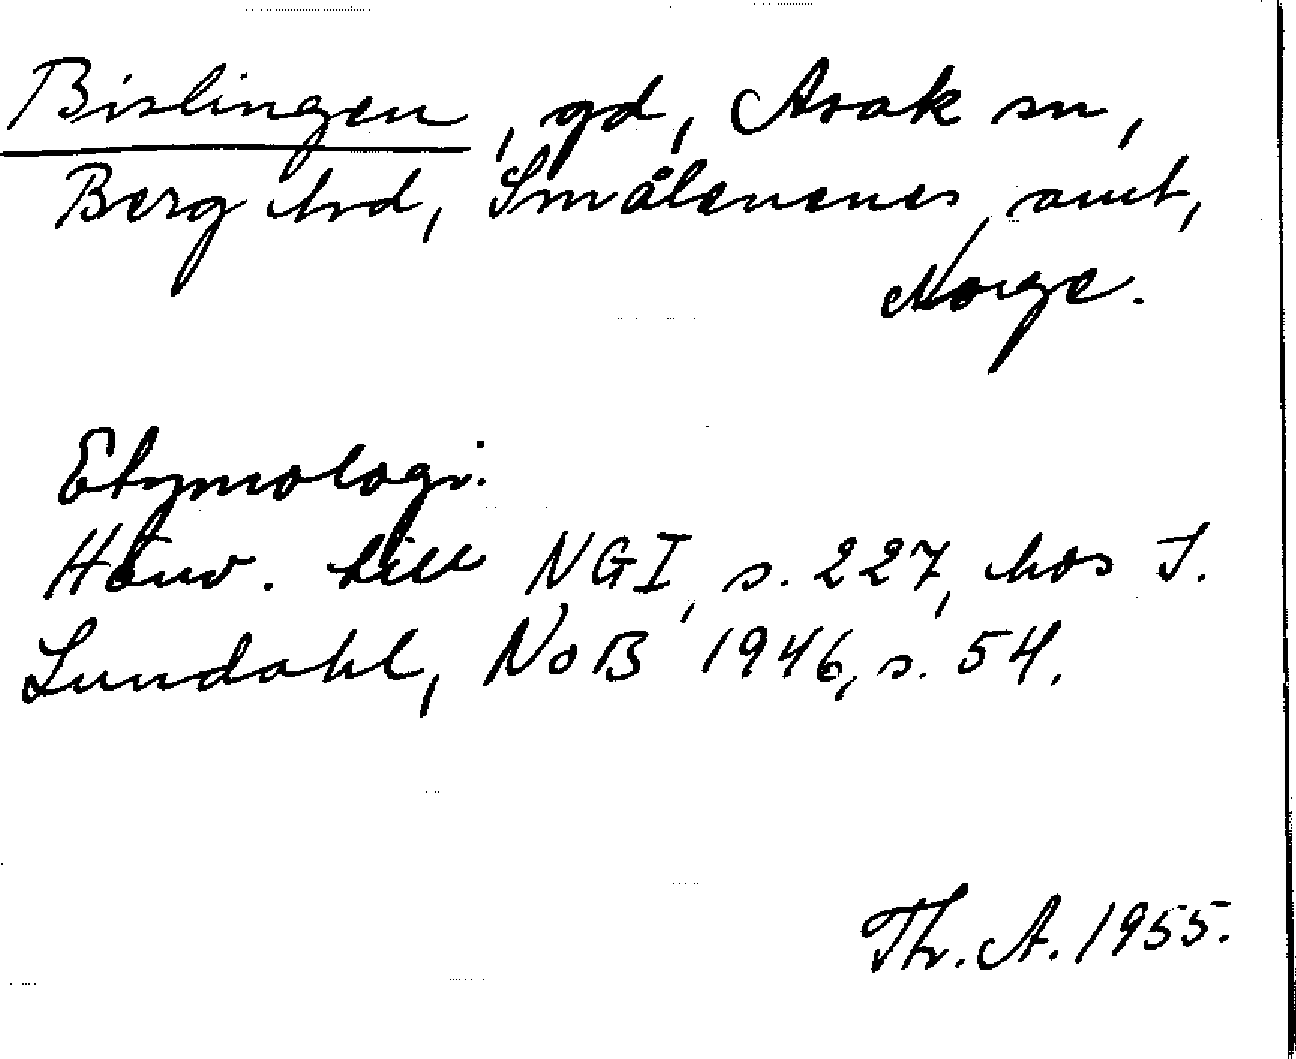 Bislingen, gd, Asak sn,
Berg hrd, Smålenenes amt,
Norge.
Etymologi.
Hänv. till NGI, s. 227, hos I.
Lundahl, NoB 1946, s. 54.
Th. A. 1955.